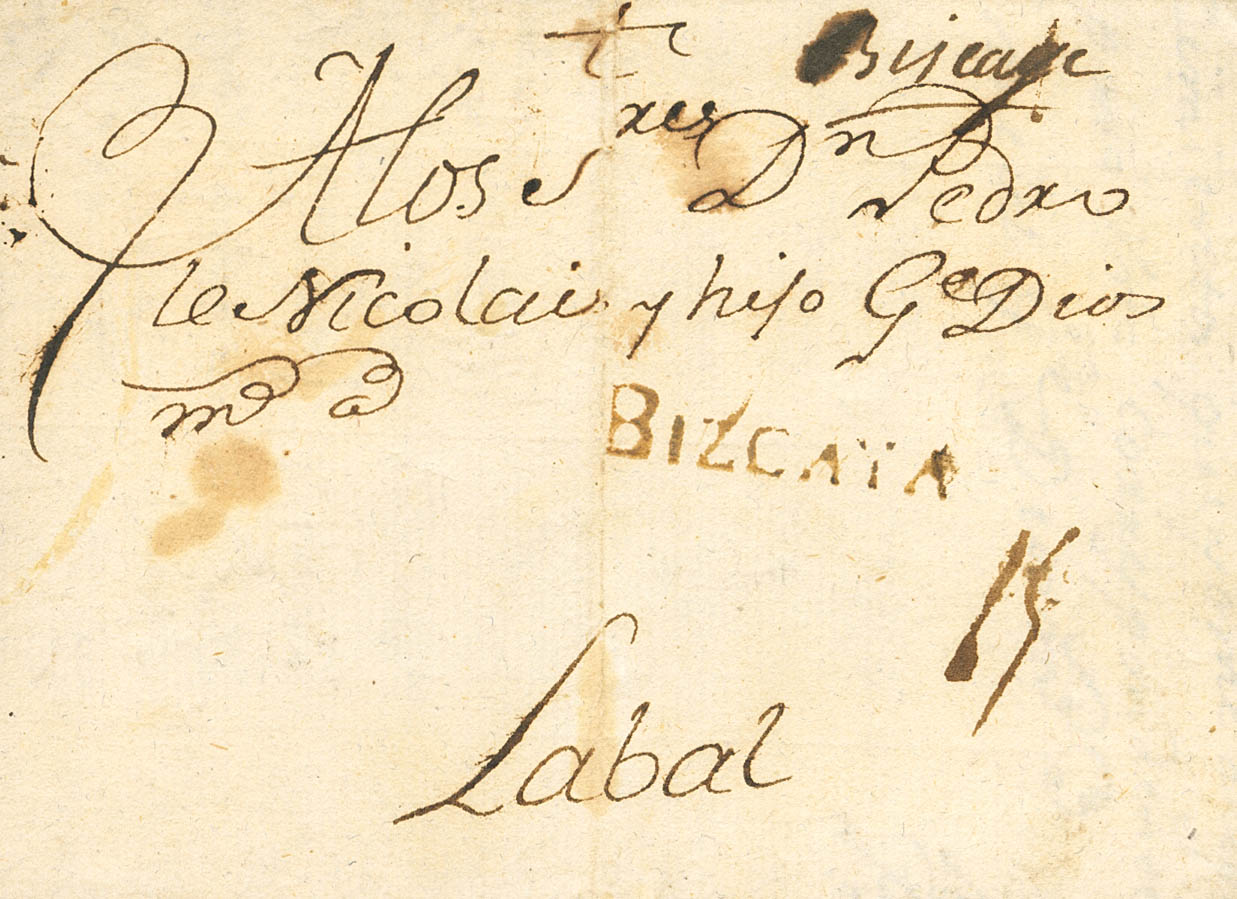 Biscaye
A los S.res Dn Pedro
le Nicolais y hijo Ge Dios
ms as
BIZCAYA
15
Labal